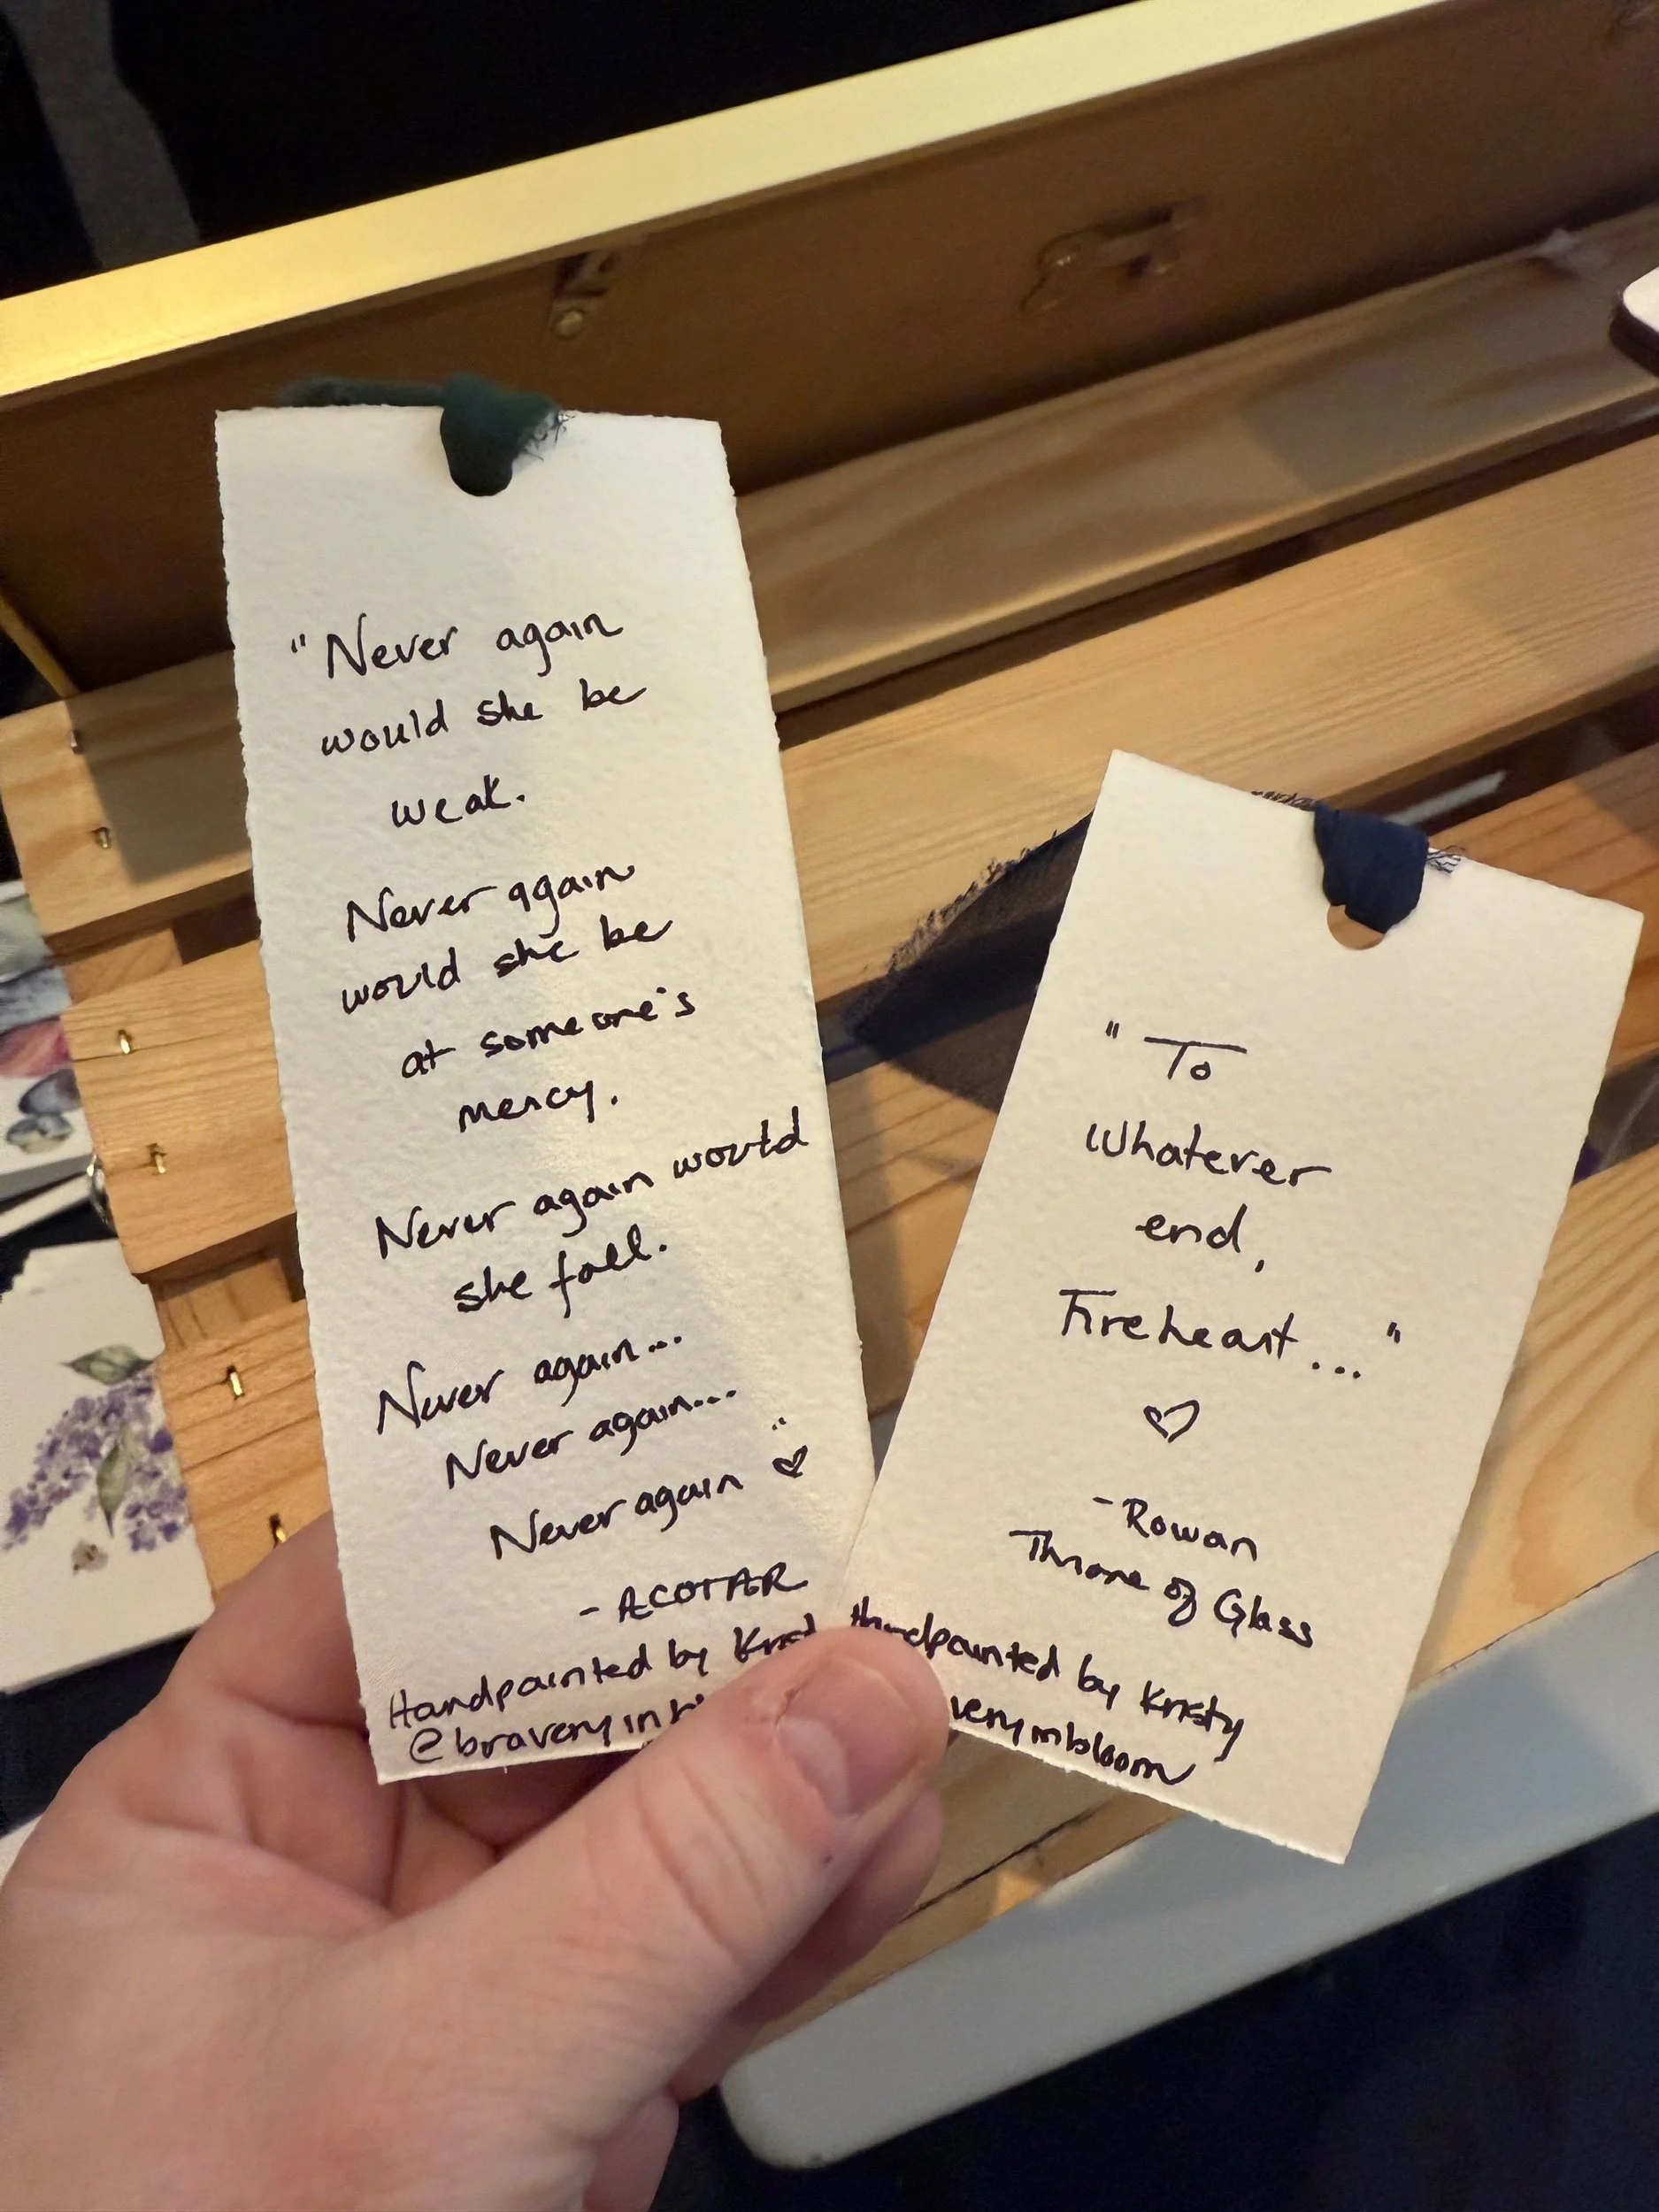 "Never again
would she be
weak.
Never again
would she be
at someone's
mercy.
Never again would
she fall.
Never again...
Never again...
Never again"
- ACOTAR
Handpainted by
@bravery in
"To
Whatever
end,
Fireheart..."
-Rowan
Throne of Glass
Handpainted by Kristy